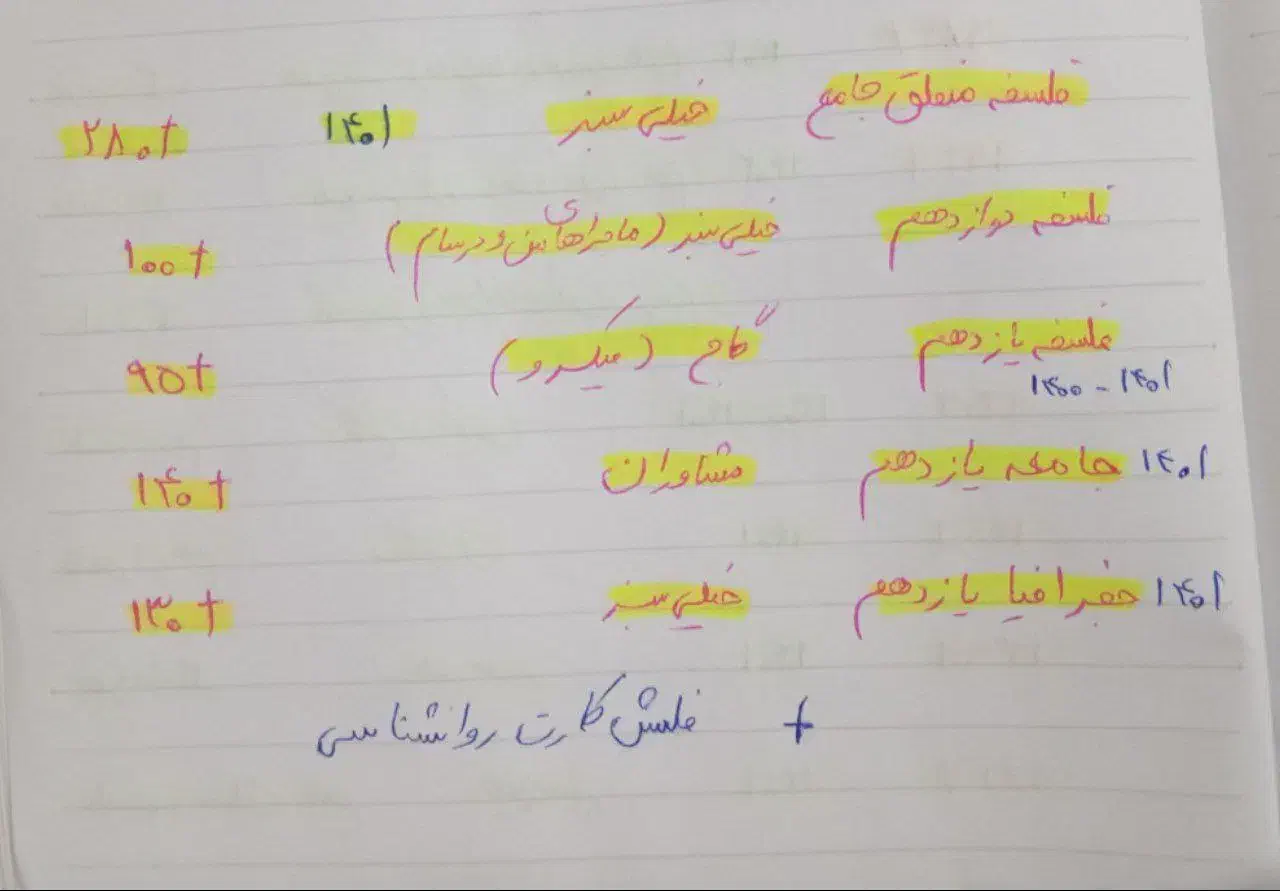 فلسفه منطق جامع خیلی سبز ۱۴۰۱ ۲۸۰ ت
فلسفه دوازدهم خیلی سبز (ماجراهای من و درسام) ۱۰۰ ت
فلسفه یازدهم گاج (میکرو) ۹۵ ت
۱۴۰۰ - ۱۴۰۱
۱۴۰۱ جامعه یازدهم مشاوران ۱۴۰ ت
۱۴۰۱ جغرافیا یازدهم خیلی سبز ۱۳۰ ت
+ فلش کارت روانشناسی